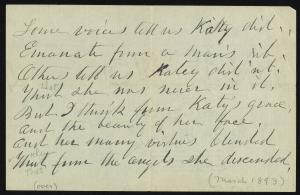 Some voices tell us Katy did.
Emanate from a man's rib.
Others tell us Katey did'nt.
That she was never in it.
But I think from Katy's grace,
And the beauty of her face,
And her many virtues blended,
That from the angels she descended.
(over)
(March 1893)